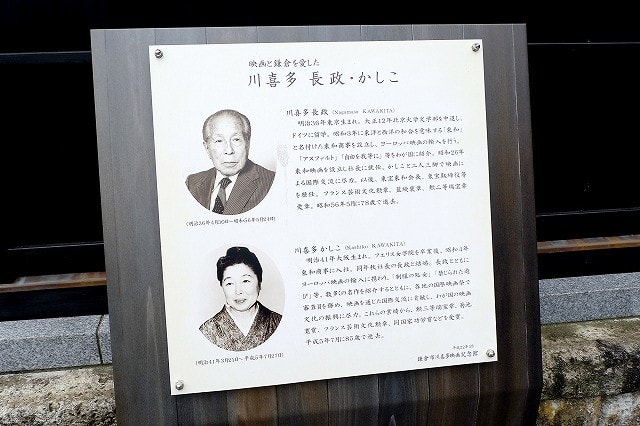 映画と鎌倉を愛した
川喜多 長政・かしこ
川喜多 長政 (Nagamasa KAWAKITA)
明治36年東京生まれ。大正12年北京大学文学部を中退し、
ドイツに留学。昭和3年に東洋と西洋の和合を意味する「東和」
と名付けた東和商事を設立し、ヨーロッパ映画の輸入を行う。
「アスファルト」「自由を我等に」等をわが国に紹介。昭和26年
東和映画を設立し社長に就任。かしこと二人三脚で映画に
よる国際交流に尽力。以後、東宝東和会長、東宝取締役等
を歴任。フランス芸術文化勲章、藍綬褒章、勲二等瑞宝章
受章。昭和56年5月に78歳で逝去。
(明治36年4月30日〜昭和56年5月24日)
川喜多 かしこ (Kashiko KAWAKITA)
明治41年大阪生まれ。フェリス女学院を卒業後、昭和4年
東和商事に入社。同年秋社長の長政と結婚。長政とともに
ヨーロッパ映画の輸入に携わり、「制服の処女」「禁じられた遊
び」等、数多くの名作を紹介するとともに、各地の国際映画祭で
審査員を務め、映画を通じた国際交流に貢献し、わが国の映画
文化の振興に尽力。これらの業績から、勲三等瑞宝章、菊池
寛賞、フランス芸術文化勲章、同国家功労賞などを受賞。
平成5年7月に85歳で逝去。
(明治41年3月21日〜平成5年7月27日)
平成22年3月
鎌倉市川喜多映画記念館